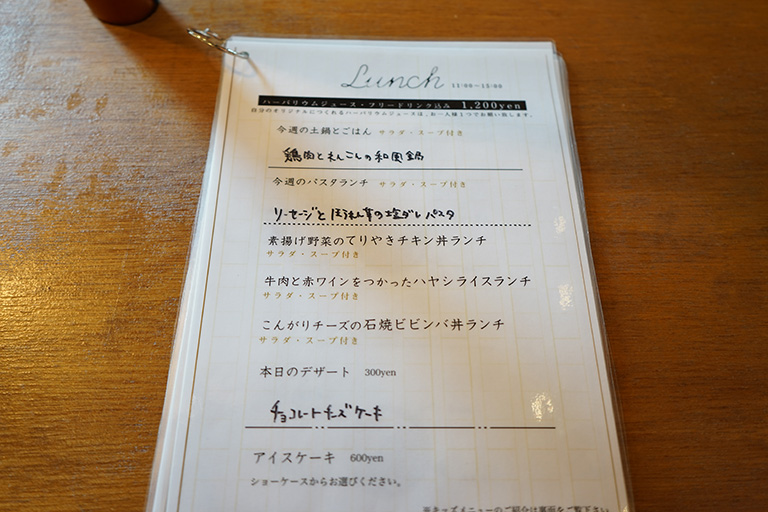 Lunch 11:00〜15:00
ハーバリウムジュース・フリードリンク込み 1,200yen
自分のオリジナルにつくれるハーバリウムジュースは、お一人様1つでお願い致します。
今週の土鍋とごはん サラダ・スープ付き
鶏肉とれんこんの和風鍋
今週のパスタランチ サラダ・スープ付き
ソーセージとほうれん草の塩ダレパスタ
素揚げ野菜のてりやきチキン丼ランチ
サラダ・スープ付き
牛肉と赤ワインをつかったハヤシライスランチ
サラダ・スープ付き
こんがりチーズの石焼ビビンバ丼ランチ
サラダ・スープ付き
本日のデザート 300yen
チョコレートチーズケーキ
アイスケーキ 600yen
ショーケースからお選びください。
※キッズメニューのご紹介は裏面をご覧下さい